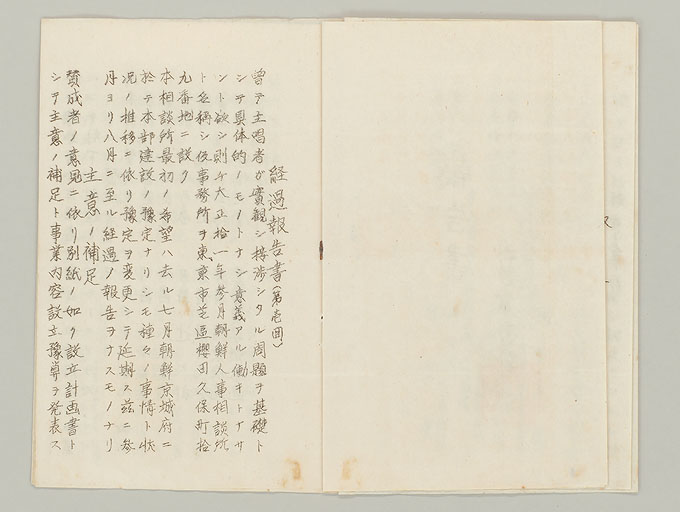 経過報告書(第壱回)
曽テ主唱者ガ實観シ接渉シタル問題ヲ基礎ト
シテ具体的ノモノトナシ意義アル働キトナサ
ント欲シ則チ大正拾一年参月朝鮮人事相談所
ト名稱シ仮事務所ヲ東京市芝區櫻田久保町拾
九番地ニ設ク
本相談所最初ノ希望ハ去ル七月朝鮮京城府ニ
於テ本部建設ノ豫定ナリシモ種々ノ事情ト状
况ノ推移ニ依リ豫定ヲ変更シテ延期ス茲ニ参
月ヨリ八月ニ至ル経過ノ報告ヲナスモノナリ
主意ノ補足
賛成者ノ意見ニ依リ別紙ノ如ク設立計画書ト
シテ主意ノ補足ト事業内容設立豫算ヲ発表ス